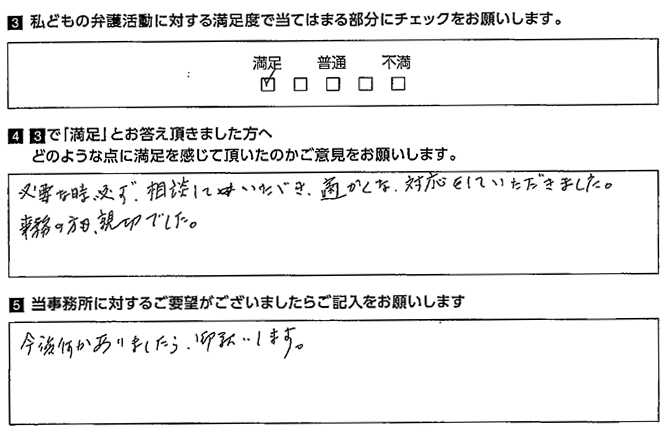 3 私どもの弁護活動に対する満足度で当てはまる部分にチェックをお願いします。
満足 普通 不満
4 3で「満足」とお答え頂きました方へ
どのような点に満足を感じて頂いたのかご意見をお願いします。
必要な時、必ず、相談していただき、対応をしていただきました。
事務の方も、親切でした。
5 当事務所に対するご要望がございましたらご記入をお願いします
今後何かありましたら、御願いします。